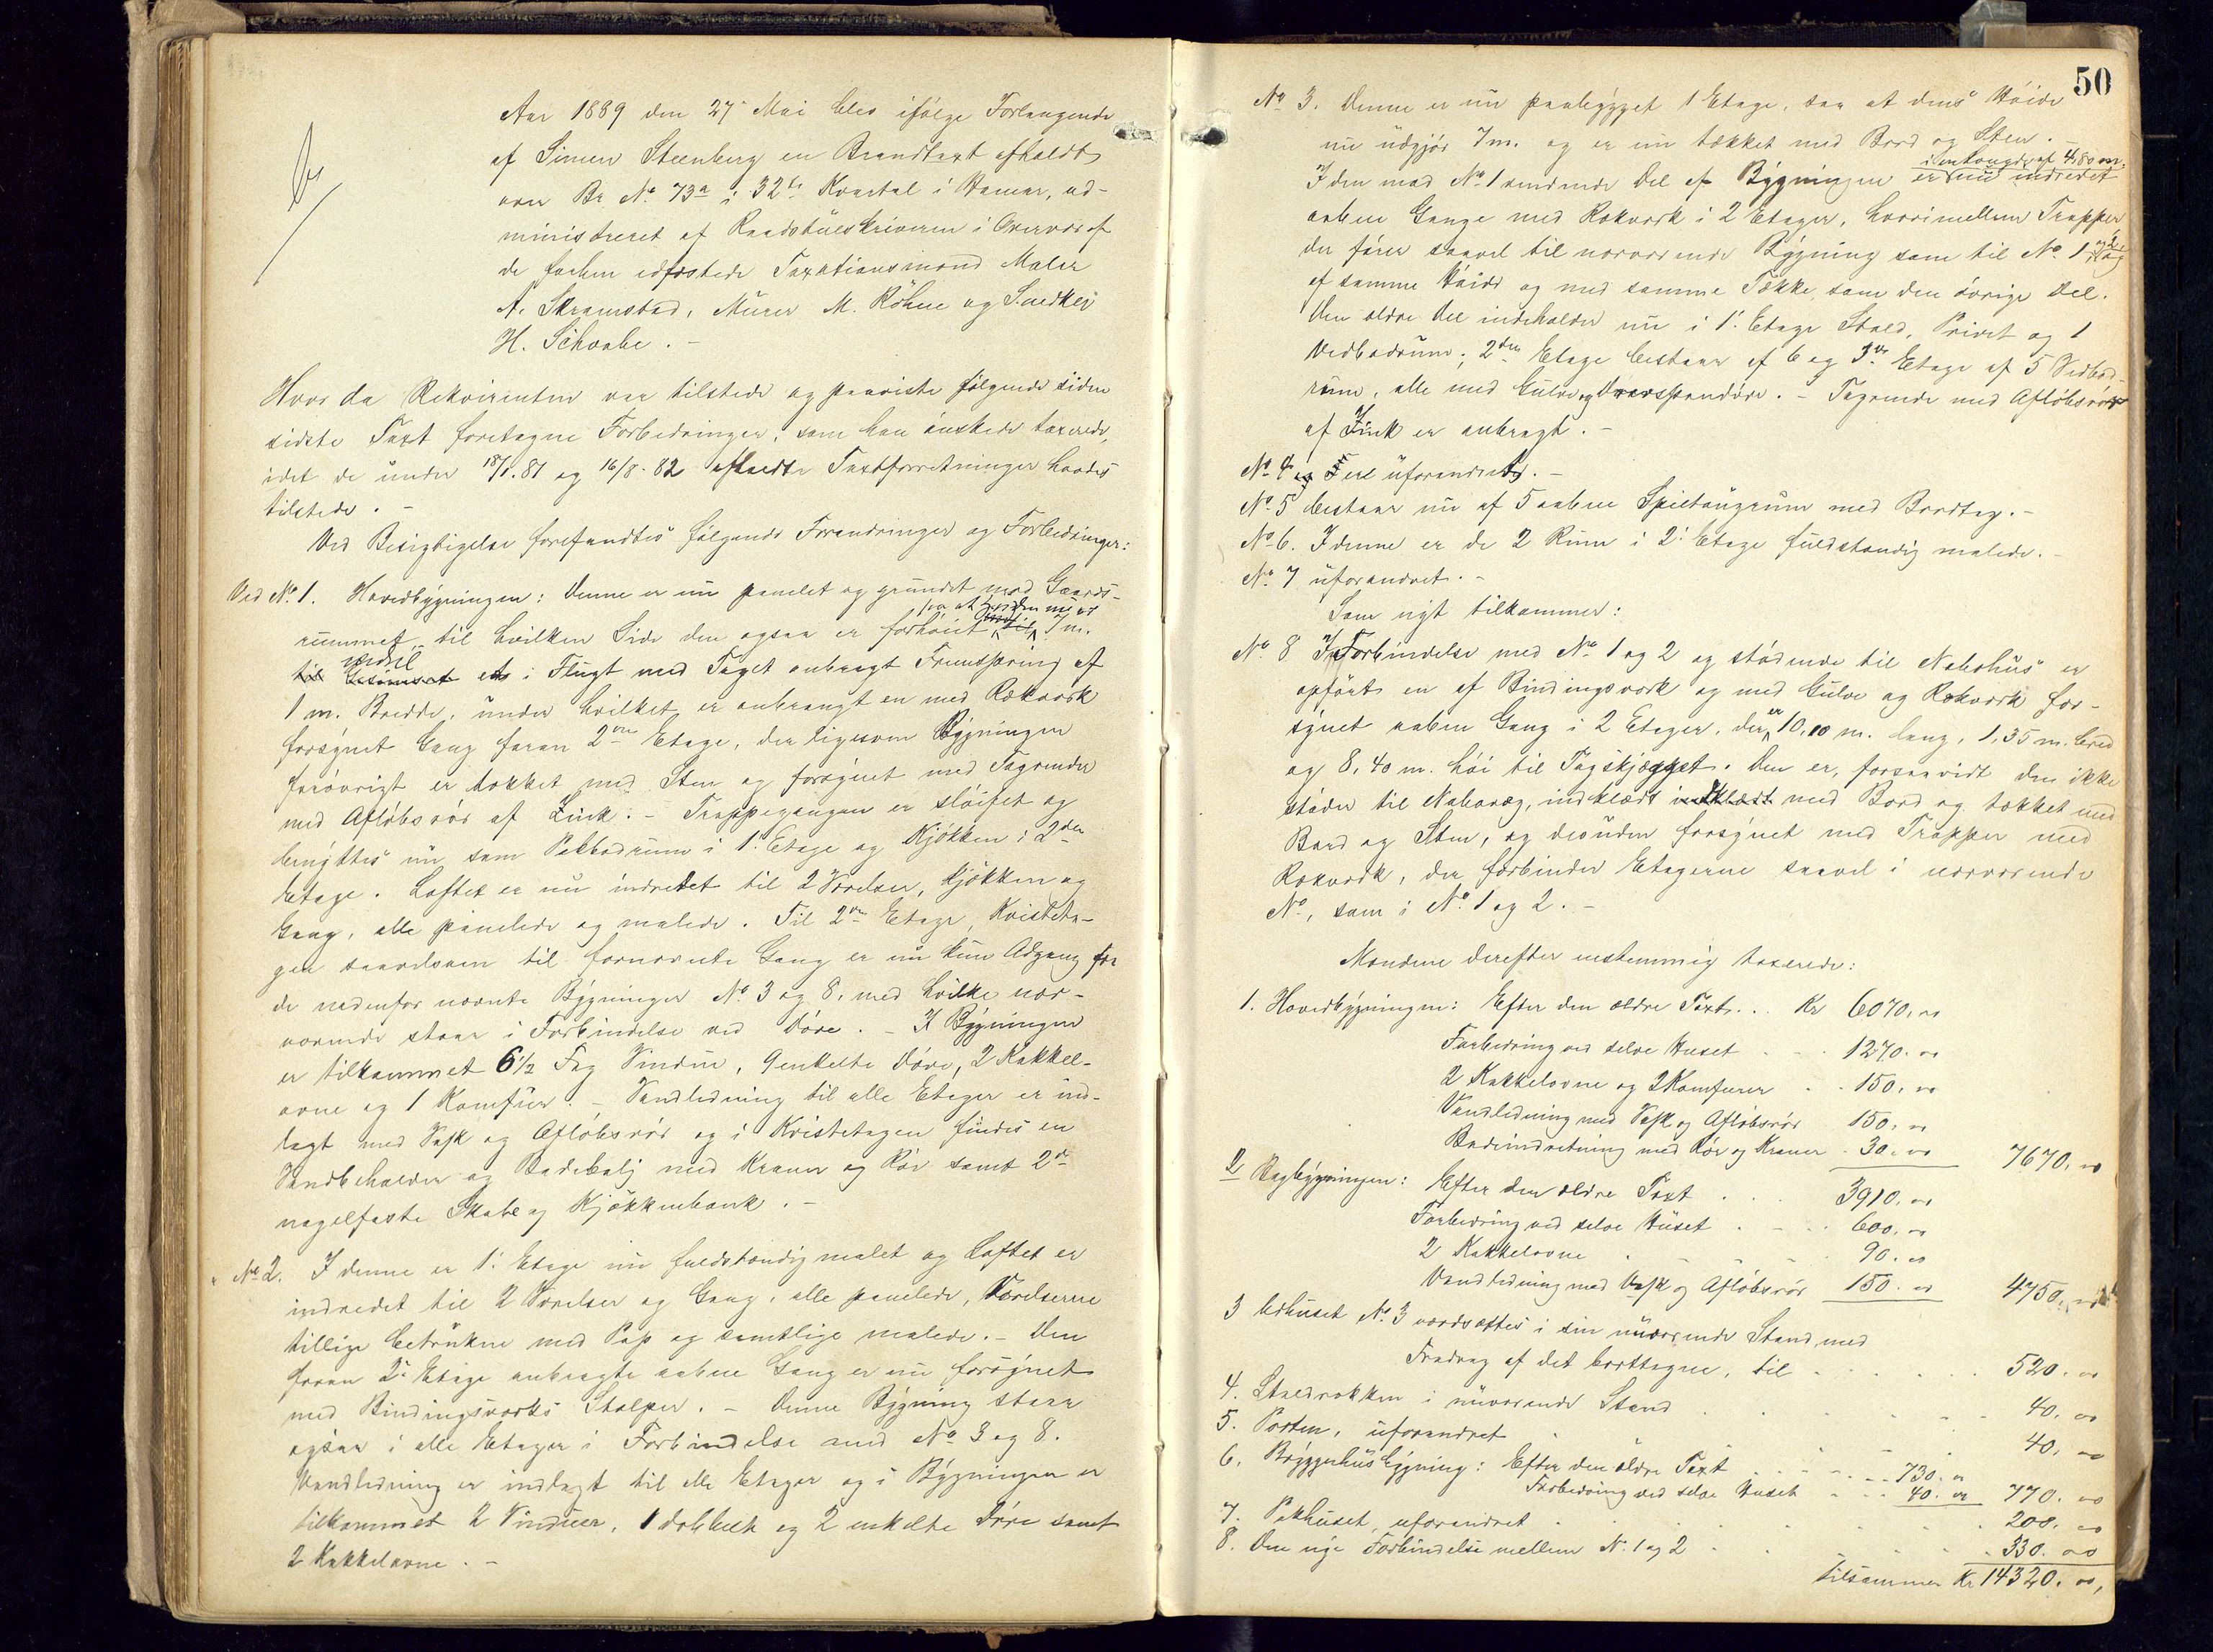 Aar 1889 den 27de Mai blev ifølge Forlangende
af Simen Steenberg en Brandtaxt afholdt
over Br No 73a i 32te Kvartal i Hamar, ad-
ministreret af Raadstueskriveren i Overvær af
de forhen edfæstede Taxationsmænd Maler
A. Skramstad, Murer M. Røhne og Snedker
H. Schwabe. -
Hvor da Rekvirenten var tilstede og paaviste følgende siden
sidste Taxt foretagne Forbedringer, som han ønskede taxerede,
idet de under 18/1. 81 og 16/8. 82 afholdte Taxtforretninger havdes
tilstede. -
Ved Besigtigelse forefandtes følgende Forandringer og Forbedringer:
Ved No. 1. Hovedbygningen: Denne er nu panelet og grundet mod Gaards-
rummet, til hvilken Side den ogsaa er forhøiet saa at høiden nu er 7 m.
i Flugt med Taget anbragt Fremspring af
1 m. Bredde, under hvilket er anbragt en med Rækværk
forsynet Gang foran 2den Etage, der ligesom Bygningen
forøvrigt er tækket med Sten og forsynet med Tagrender
med Afløbsrør af Zink. - Trappegangen er sløifet og
benyttes nu som Pakbodrum i 1. Etage og Kjøkken i 2den
Etage. Loftet er nu indredet til 2 Værelser, Kjøkken og
Gang, alle panelede og malede. Til 2den Etage, Kvisteta-
gen saavelsom til fornævnte Gang er nu kun Adgang fra
de nedenfor nævnte Bygninger No. 3 og 8, med hvilke nær-
værende staar i Forbindelse ved Døre. - I Bygningen
er tilkommet 6 1/2 Fag Vindue, 9 enkelte Døre, 2 Kakkel-
ovne og 1 Komfur. - Vandledning til alle Etager er ind-
lagt med Vask og Afløbsrør og i Kvistetagen findes en
Vandbeholder og Badebalj med Kraner og Rør samt 2de
nagelfaste Skabe og Kjøkkenbænk. -
" No 2. I denne er 1. Etage nu fuldstændig malet og Loftet er
indredet til 2 Værelser og Gang, alle panelede, Værelserne
tillige betrukne med Pap og samtlige malede. - Den
foran 2. Etage anbragte aabne Gang er nu forsynet
med Bindingsværks Stolper. - Denne Bygning staar
ogsaa i alle Etager i Forbindelse med No 3 og 8.
Vandledning er indlagt til alle Etager og i Bygningen er
tilkommet 2 Vinduer, 1 dobbelt og 2 enkelte Døre samt
2 Kakkelovne. -
50
No 3. Denne er nu paabygget 1 Etage, saa at dens Høide
nu udgjør 7 m. og er nu tækket med Bord og Sten. -
I den mod No. 1 vendende Del af Bygningen er i en Længde af 4,80 m. nu indredet
aabne Gange med Rækværk i 2 Etager, hvorimellem Trapper
der fører saavel til nærværende Bygning som til No. 1 og 2,
af samme Høide og med samme Tække som den øvrige Del.
Den ældre Del indeholder nu i 1. Etage Stald, Privet og 1
Vedbodrum; 2den Etage bestaar af 6 og 3die Etage af 5 Vedbod-
rum, alle med Gulve og Døre. - Tagrende med Afløbsrør
af Zink er anbragt. -
No 4 uforandret. -
No 5 bestaar nu af 5 aabne Spiltaugrum med Bordtag. -
No 6. I denne er de 2 Rum i 2. Etage fuldstændig malede. -
No 7 uforandret. -
Som nyt tilkommer:
No 8 I Forbindelse med No 1 og 2 og stødende til Nabohus er
opført en af Bindingsværk og med Gulve og Rækværk for-
synet aaben Gang i 2 Etager, der er 10,10 m. lang, 1,35 m. bred
og 8,40 m. høi til Tagskjægget. Den er, forsaavidt den ikke
støder til Nabovæg, indklædt med Bord og tækket med
Bord og Sten, og desuden forsynet med Trapper med
Rækværk, der forbinder Etagerne saavel i nærværende
No, som i No. 1 og 2. -
Mændene derefter enstemmig taxerede:
1. Hovedbygningen: Efter den ældre Taxt... Kr 6070. 00
Forbedring ved selve Huset - - . 1270. 00
2 Kakkelovne og 2 Komfurer . . 150. 00
Vandledning med Vask og Afløbsrør 150. 00
Badeindretning med Rør og Kraner . 30. 00 7670. 00
2 Bagbygningen: Efter den ældre Taxt . . . 3910. 00
Forbedring ved selve Huset . - . . 600. 00
2 Kakkelovne . - - - . 90. 00
Vandledning med Vask og Afløbsrør 150. 00 4750. 00
3 Udhuset No. 3 værdsættes i sin nuværende Stand med
Fradrag af det borttagne, til . . . . . 520. 00
4. Staldrækken i nuværende Stand . . . . - - 40. 00
5. Porten, uforandret . . . - . 40. 00
6. Bryggerhusbygning: Efter den ældre Taxt . . - - - 730. 00
Forbedring ved selve Huset - - - 40. 00 770. 00
7. Pakhuset, uforandret . . . . . . . 200. 00
8. Den nye Forbindelse mellem No. 1 og 2 . . . . . 330. 00
Tilsammen Kr 14320. 00,